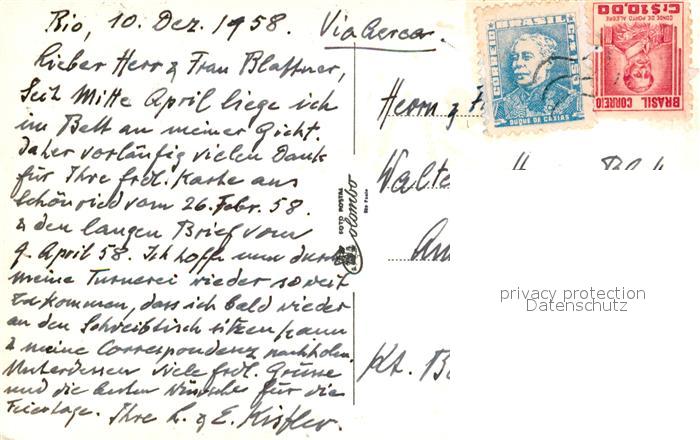 Rio, 10. Dez. 1958. Via aerea.
Lieber Herr & Frau Blattner,
Seit Mitte April liege ich
im Bett an meiner Gicht.
Daher vorläufig vielen Dank
für Ihre frdl. Karte aus
Schönried vom 26. Febr. 58.
& den langen Brief vom
9. April 58. Ich hoffe nun durch
meine Turnerei wieder soweit
zu kommen, dass ich bald wieder
an den Schreibtisch sitzen kann
& meine Correspondenz nachholen.
Unterdessen viele frdl. Grüsse
und die besten Wünsche für die
Feiertage. Ihre L. & E. Kistler.
FOTO POSTAL
Colombo
São Paulo
BRASIL
CORREIO
DUQUE DE CAXIAS
BRASIL CORREIO
CONDE DE PORTO ALEGRE
CR$10,00
Herrn & F
Walte
Am
Kt. B
privacy protection
Datenschutz